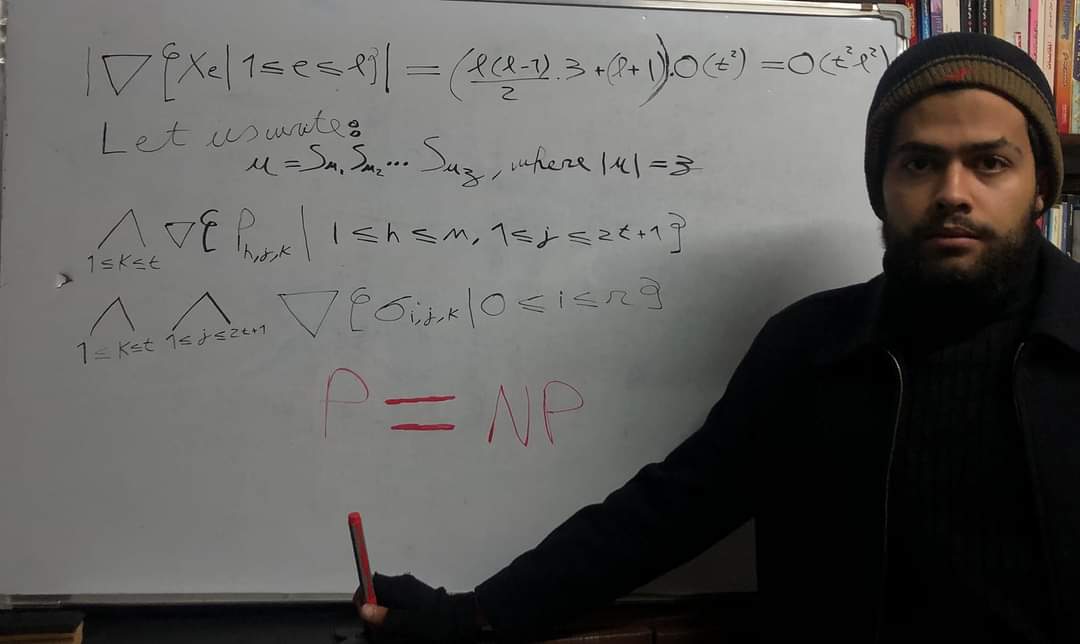 |▽{Xe|1≤e≤l}| = (l(l-1)/2 . 3 + (l+1)).O(t²) = O(t²l²)
Let us write:
u = Su₁ Su₂ ... Su₃, where |u| = 3
⋀ ▽{P h,j,k | 1≤h≤n, 1≤j≤2t+1}
1≤K≤t
⋀ ⋀ ▽{σ i,j,k | 0≤i≤r}
1≤K≤t 1≤j≤2t+1
P = NP